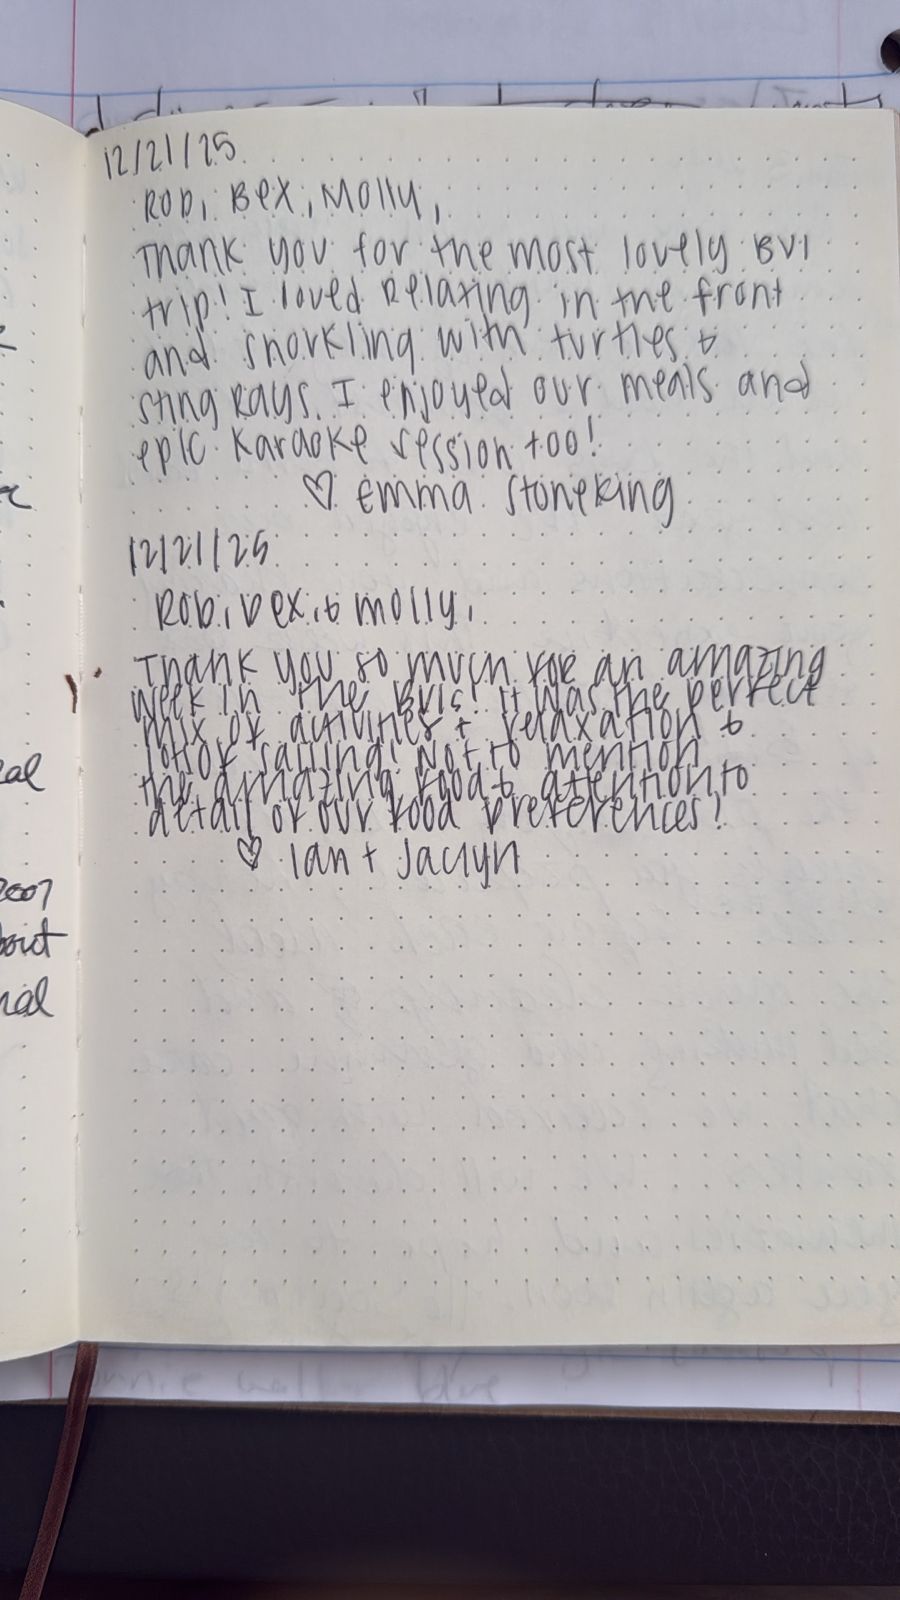 12/21/25
Rob, Bex, Molly,
Thank you for the most lovely BVI
trip! I loved relaxing in the front
and snorkling with turtles &
sting rays. I enjoyed our meals and
epic karaoke session too!
♡ Emma Stoneking
12/21/25
Rob, Bex, & Molly,
Thank you so much for an amazing
week in the BVIs! It was the perfect
mix of activities + relaxation &
lots of sailing! Not to mention
the amazing food & attention to
detail of our food preferences!
♡ Ian + Jaclyn
2007
bout